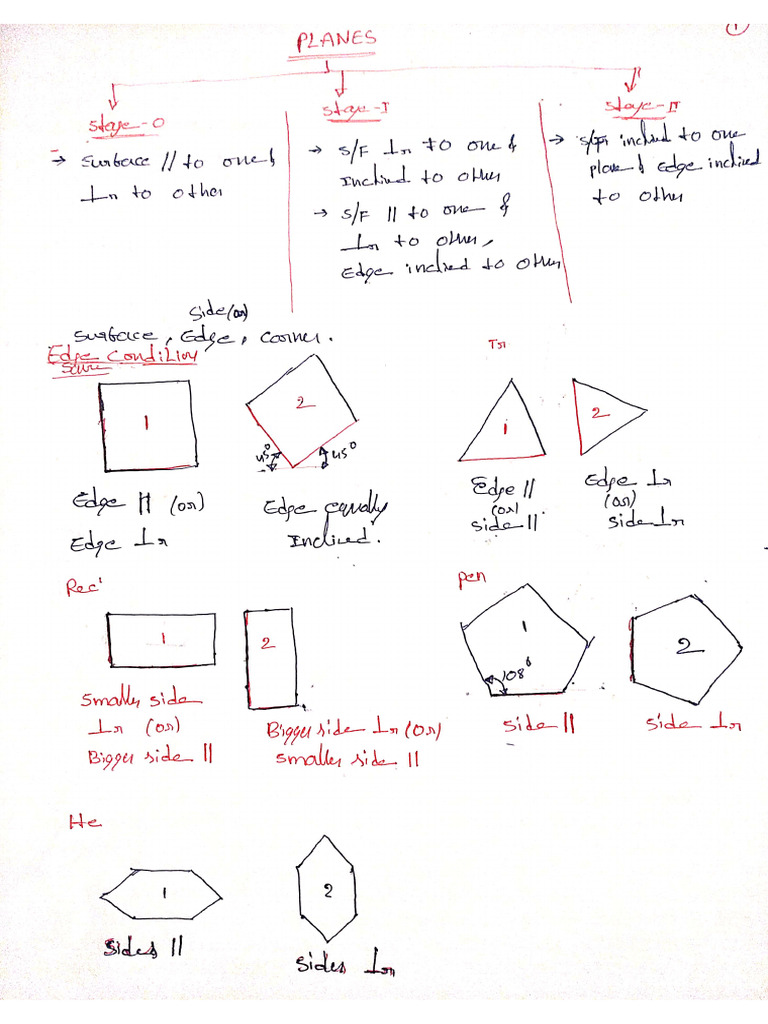 1
PLANES
Stage-0
→ Surface // to one &
⊥r to other
Stage-I
→ S/F ⊥r to one &
Inclined to other
→ S/F // to one &
⊥r to other,
Edge inclied to other
Stage-II
→ S/F inclied to one
plane & Edge inclied
to other
Side (or)
Surface, Edge, corner.
Edge condition
1
2
45°
45°
Edge // (or)
Edge ⊥r
Edge equally
Inclined.
Tr
1
2
Edge //
(or)
side //
Edge ⊥r
(or)
side ⊥r
Rec'
1
2
Smaller side
⊥r (or)
Bigger side //
Bigger side ⊥r (or)
smaller side //
Pen
1
108°
2
side //
side ⊥r
He
1
2
Sides //
Sides ⊥r